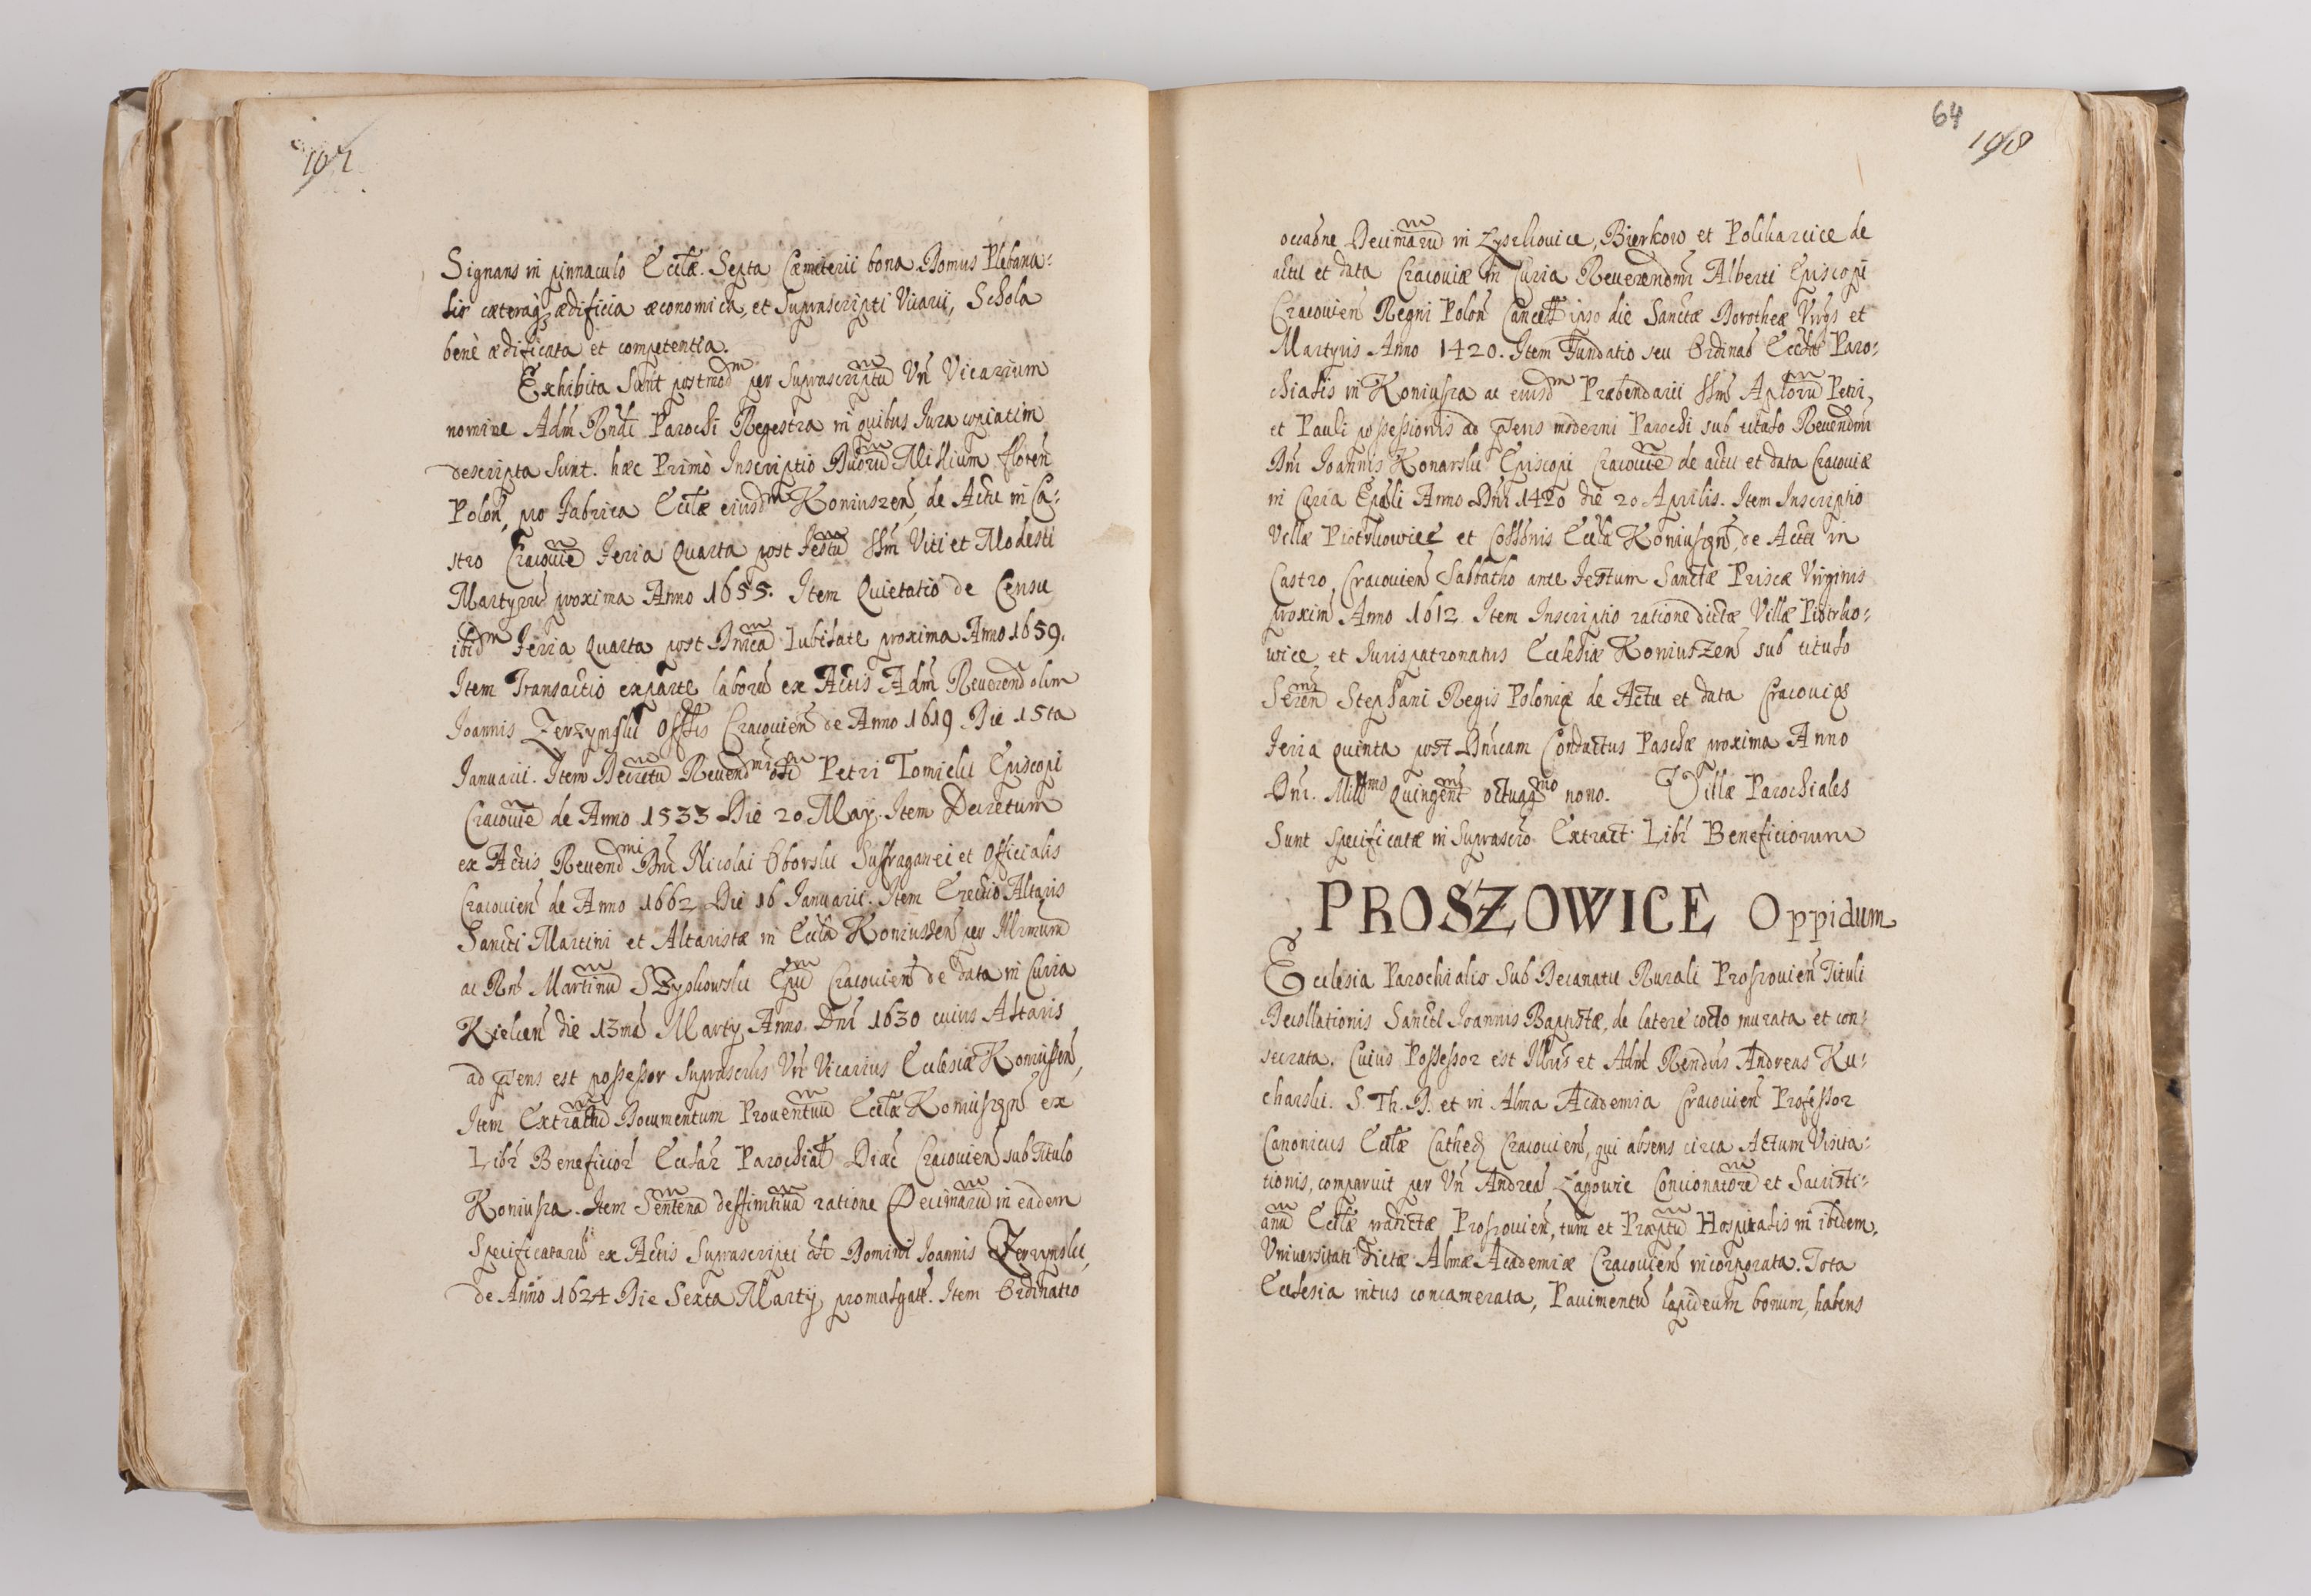 197
Signans in pinnaculo Eccłæ. Septa Cæmiterii bona. Domus Plebana-
lis cæteraq; ædificia œconomica, et Suprascripti Vicarii, Schola
benè ædificata et competentia.
Exhibita Sunt postmodm per Suprascriptū Vn̄ Vicarium
nomine Adm̄ Rn̄di Parochi Regestra in quibus Iura copiatim
descripta Sunt. hæc Primò Inscriptio Duorū Millium floren̄
Polon̄, pro Fabrica Eccłæ eiusdm Koniuszen̄, de Actu in Ca-
stro Cracovie Feria Quarta post Festū SSm̄ Viti et Modesti
Martyrū proxima Anno 1655. Item Quietatio de Censu
ibidm Feria Quarta post Dn̄ica Iubilate proxima Anno 1659.
Item Transactio ex parte laborū ex Actis Adm̄ Reverend olim
Joannis Zerzynski Offłis Cracovien̄ de Anno 1619. Die 15ta
Januarii. Item Decretū Revendmi olī Petri Tomicki Episcopi
Cracovie de Anno 1533 Die 20 May. Item Decretum
ex Actis Revendmi Dn̄i Nicolai Oborski Suffraganei et Officialis
Cracovien̄ de Anno 1662 Die 16 Januarii. Item Erectio Altaris
Sancti Martini et Altaristæ in Eccła Koniuszen̄ per Illrimum
ac Rn̄ Martinū Szyszkowski Epū Cracovien̄ de data in Curia
Kielcen̄ die 13ma Marty Anno Dn̄i 1630 cuius Altaris
ad p̄sens est possessor suprascrius Vn̄ Vicarius Eclesiæ Koniussen̄,
Item Extractū Documentum Proventuū Eccłæ Koniuszen̄ ex
Libr̄ Beneficior̄ Ecclar̄ Parochial Diæc̄ Cracovien̄ sub Titulo
Koniusza. Item Sentena deffinitiva ratione Decimarū in eadem
Specificatarū ex Actis Suprascripti olī Domini Joannis Zerzynski,
de Anno 1624 Die Sexta Marty promulgatł. Item Ordinatio
64
198
occaōne Decimarū in Łyszkowice, Bierkow et Polikarcice de
actu et data Cracoviæ in Curia Reverendmi Alberti Episcopi
Cracovien̄ Regni Polon̄ Cancełł ipso die Sanctæ Dorotheæ Vn̄gs et
Martyris Anno 1420. Item Fundatio seu Ordinao Eccliæ Paro-
chialis in Koniusza ac eiusdm Præbendarii SSm̄ Aplorū Petri,
et Pauli possessionis ad p̄sens moderni Parochi sub titulo Revendmi
Dn̄i Joannis Konarski Episcopi Cracovie de actu et data Cracoviæ
in Curia Ep̄ali Anno Dn̄i 1420 die 20 Aprilis. Item Inscriptio
Villæ Piotrkowice et Collōnis Eccła Koniuszen̄, de Actu in
Castro, Cracovien̄ Sabbatho ante Festum Sanctæ Priscæ Virginis
proxim̄ Anno 1612. Item Inscriptio ratione dictæ Villæ Piotrko-
wice et Jurispatronatus Eclesiæ Koniuszen̄ sub titulo
Serenmi Stephani Regis Poloniæ de Actu et data Cracoviæ
Feria quinta post Dn̄icam Conductus Paschæ proxima Anno
Dn̄i. Millmo Quingentms octuagmo nono. Villæ Parochiales
Sunt specificatæ in Suprascro Extract. Libr̄ Beneficiorum
PROSZOWICE Oppidum
Ecclesia Parochialis Sub Decanatu Rurali Proszovien̄ Tituli
Decollationis Sancti Joannis Baptistæ, de latere cocto murata et con-
secrata. Cuius Possessor est Illris et Adm̄ Rendus Andreas Ku-
charski. S. Th. D. et in Alma Academia Cracovien̄ Professor
Canonicus Eccłæ Cathed Cracovien̄, qui absens circa Actum Visita-
tionis, comparuit per Vn̄ Andrea Łagowic Concionatore et Sacristi-
anū Eccłæ p̄adictæ Proszovien̄, tum et Præptū Hospitalis in ibidem.
Universitati Dictæ Almæ Academiæ Cracovien̄ incorporata. Tota
Ecclesia intus concamerata, Pavimentū lapideum bonum, habens